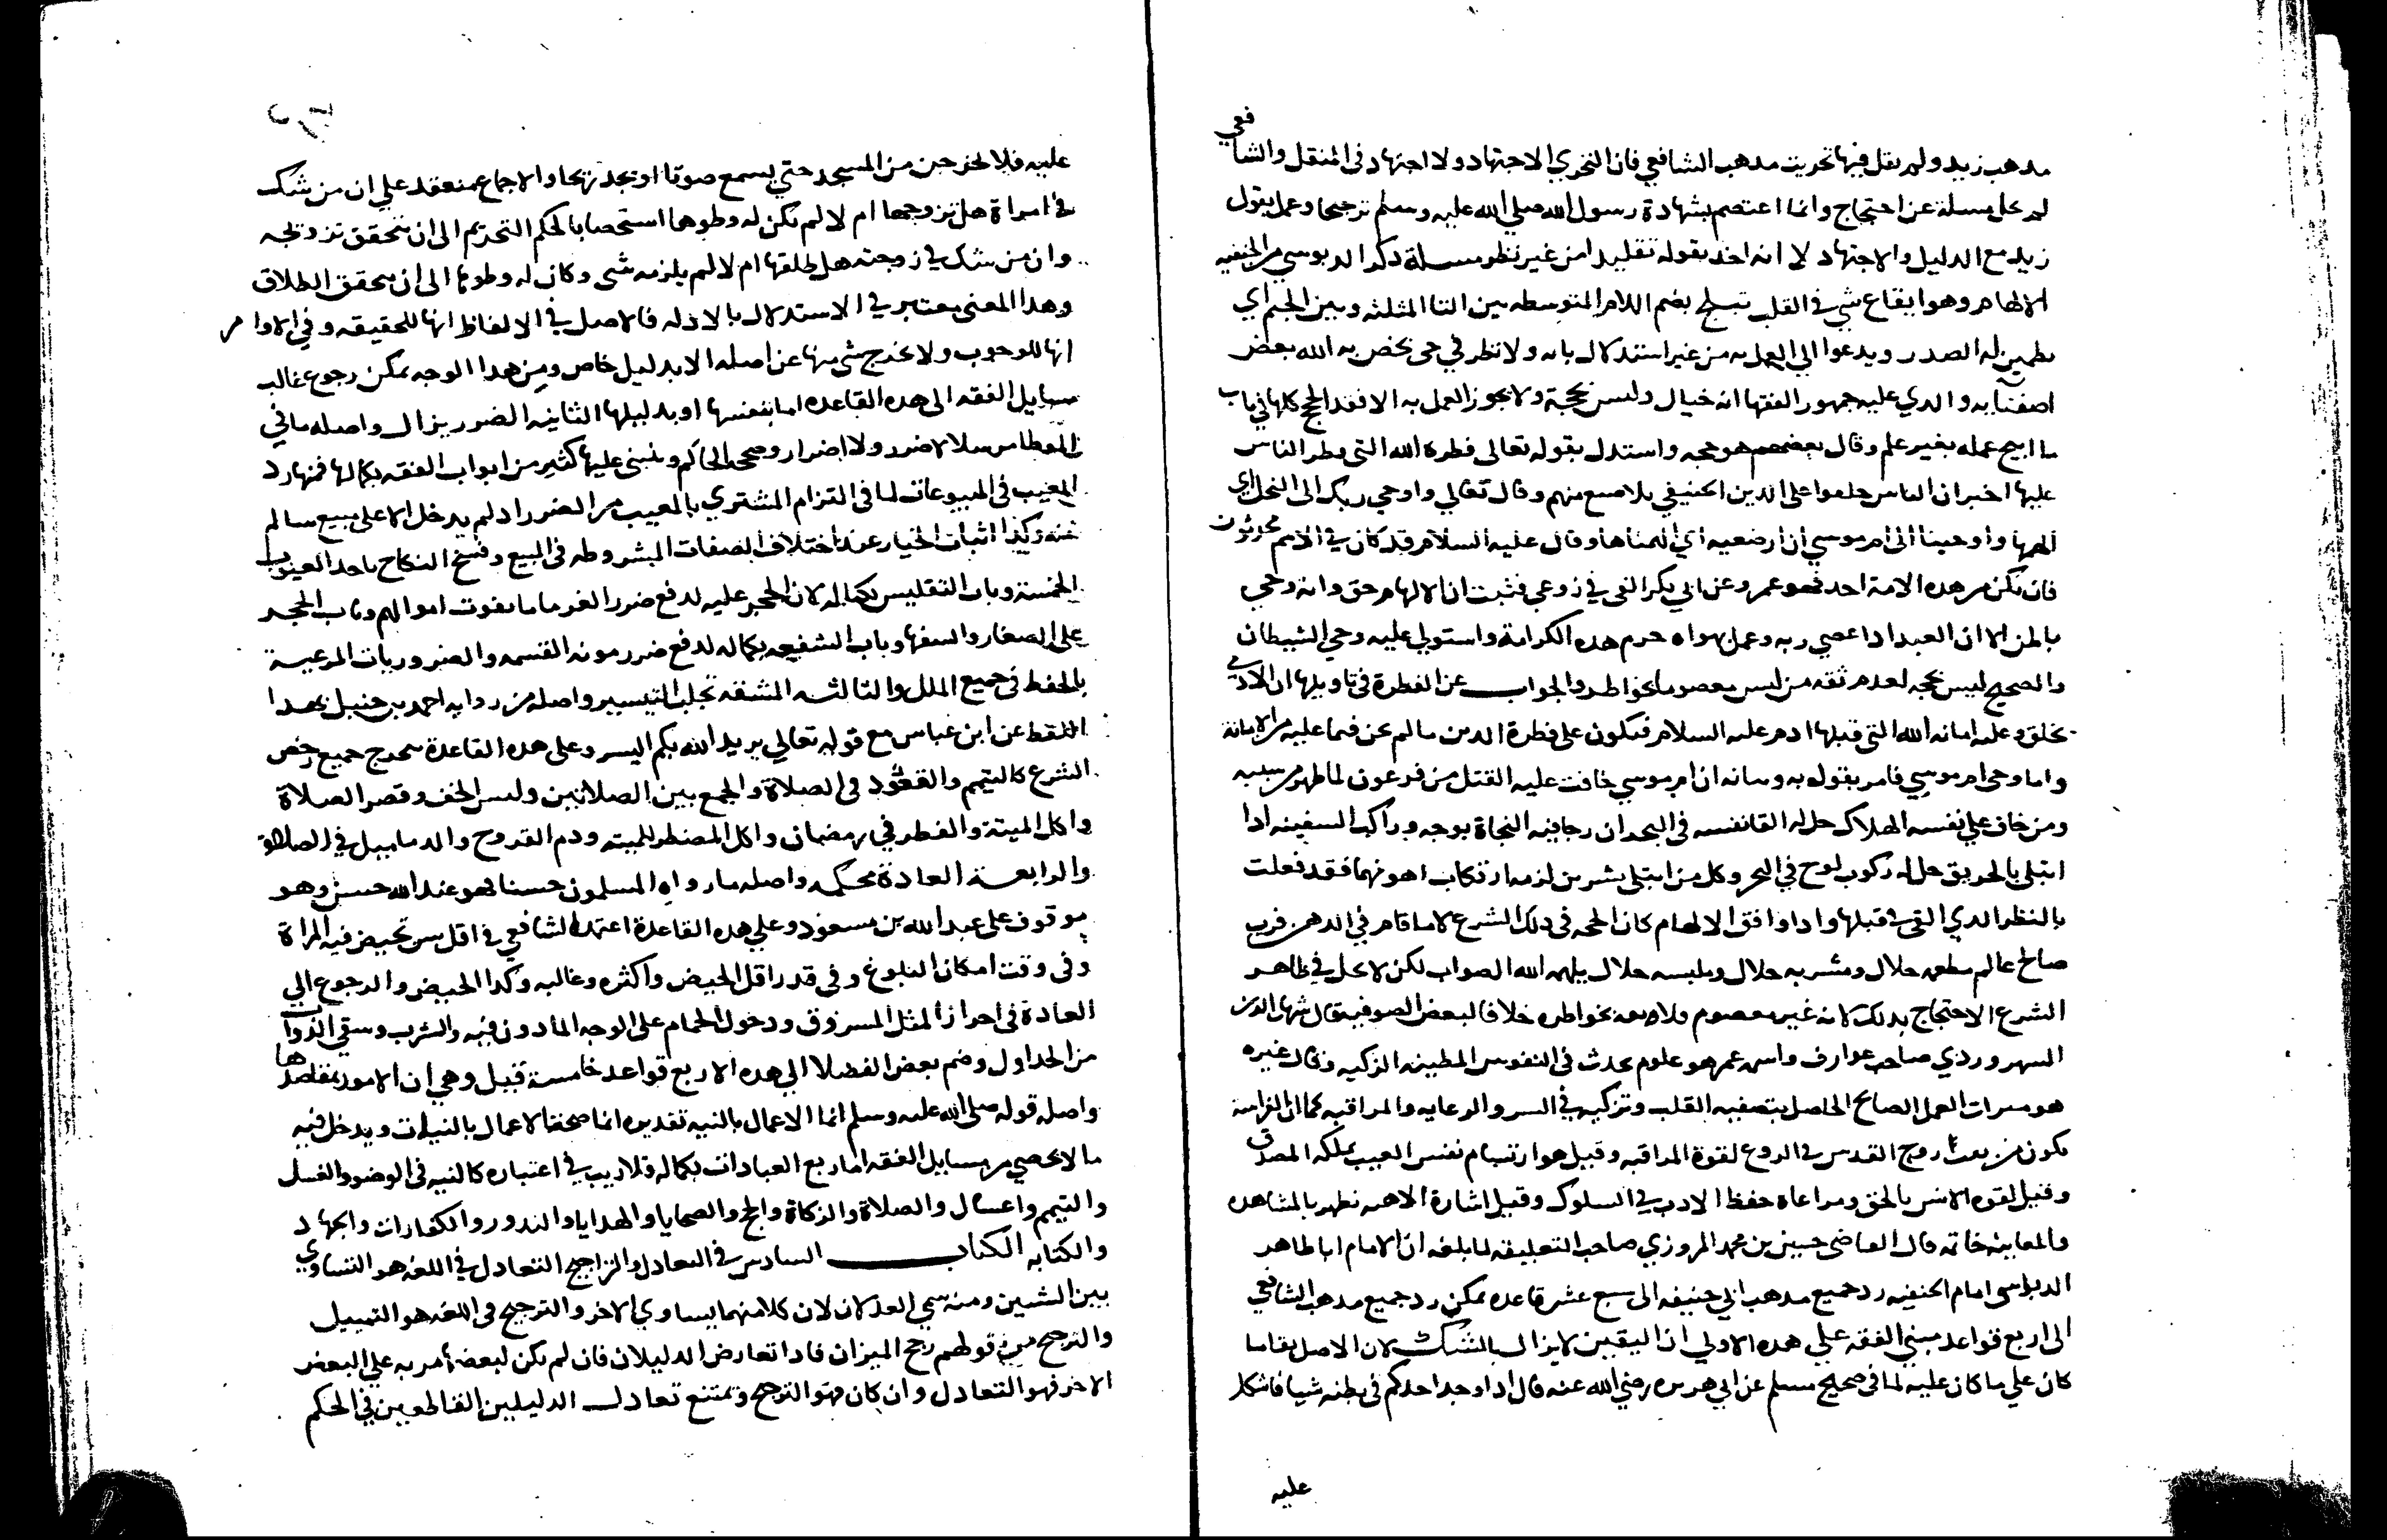 مدهب زيد ولم يقل فيها تحريت مدهب الشافعي فان التحري الاجتهاد ولا اجتهاد في المنقل والشافعي
لم يحل مسلة عن احتجاج وانما اعتصم بشهادة رسول الله صلي الله عليه وسلم ترجيحا وعمل بقول
زيد مع الدليل والاجتهاد لا انه اخد بقوله تقليدا من غير نظر مسلة دكر الدبوسي من الحنفيه
الالهام وهو ايقاع شي في القلب تيلج بضم اللام المتوسطه بين التا المثلثه وبين الجيم اي
يطمين له الصدر ويدعوا الي العمل به من غير استدلال بايه ولا نظر في حجه يخص به الله بعض
اصفيائه والدي عليه جمهور الفقها انه خيال وليس بحجة ولا يجوز العمل به الا فقد الحجج كلها في باب
ما ابيح عمله بغير علم وقال بعضهم هو حجه واستدل بقوله تعالى فطرة الله التي فطر الناس
عليها اخبر ان الناس خلقوا على الدين الحنيفي بلا صنع منهم وقال تعالي واوحي ربك الى النحل اي
الهمها واوحينا الى ام موسي ان ارضعيه اي الهمناها وقال عليه السلام قد كان في الامم محدثون
فان يكن من هده الامة احد فهو عمر وعن ابي بكر القي في روعي فثبت ان الالهام حق وانه وحي
بالمن الا ان العبد ادا عصي ربه وعمل بهواه حرم هده الكرامة واستولي عليه وحي الشيطان
والصحيح ليس بحجه لعدم ثقه من ليس معصوما بخواطره والجواب عن الفطرة في تاويلها ان الادمي
يخلق وعليه امانه الله التي قبلها ادم عليه السلام فيكون على فطرة الدين ما لم يخن فيما عليه من الامانة
واما وحي ام موسي فامر بقوله به وبيانه ان ام موسي خافت عليه القتل من فرعون لما ظهر من سببه
ومن خاف علي نفسه الهلاك حل له القا نفسه في البحر ان رجا فيه النجاة بوجه وراكب السفينه ادا
ابتلي بالحريق حل له ركوب لوح في البحر وكل من ابتلي بشرين لزمه ارتكاب اهونهما فقد فعلت
بالنظر الدي القي قبلها وادا وافق الالهام كان الحجه في دلك الشرع لا ما قام في الدهن فرب
صالح عالم مطعمه حلال ومشربه حلال وملبسه حلال يلهمه الله الصواب لكن لا يحل في ظاهر
الشرع الاحتجاج بدلك لانه غير معصوم ولا ثقه بخواطره خلافا لبعض الصوفيه قال شهاب الدين
السهروردي صاحب عوارف واسمه عمر هو علوم يحدث في النفوس المطمينه الزكيه وقال غيره
هو ميراث العمل الصالح الحاصل بتصفيه القلب وتزكيه في السر والرعايه والمراقبه كما ان الفراسة
تكون من نفث روح القدس في الروع لقوة المراقبه وقيل هو ارتسام نفس الغيب بملكه المصدق
وقيل لقوه الانس بالحق ومراعاة حفظ الادب في السلوك وقيل اشارة الاهيه تظهر بالمشاهده
والمعاينه خاتمه قال القاضي حسين بن محمد المروزي صاحب التعليقه لما بلغه ان الامام ابا طاهر
الدباسي امام الحنفيه رد جميع مدهب ابي حنيفه الى سبع عشر قاعده يمكن رد جميع مدهب الشافعي
الى اربع قواعد مبني الفقه علي هده الاولي ان اليقين لا يزال بالشك لان الاصل بقاما
كان علي ما كان عليه لما في صحيح مسلم عن ابي هريره رضي الله عنه قال ادا وجد احدكم في بطنه شيا فاشكل
عليه
عليه فلا يخرجن من المسجد حتي يسمع صوتا او يجد ريحا والاجماع منعقد علي ان من شك
في امراة هل تزوجها ام لا لم يكن له وطوها استصحابا لحكم التحريم الى ان يتحقق تزويجه
وان من شك في زوجته هل طلقها ام لا لم يلزمه شي وكان له وطوها الى ان يتحقق الطلاق
وهدا المعنى معتبر في الاستدلال بالادله فالاصل في الالفاظ انها للحقيقه وفي الاوامر
انها للوجوب ولا يخرج شي منها عن اصله الا بدليل خاص ومن هدا الوجه يمكن رجوع غالب
مسايل الفقه الى هده القاعده اما بنفسها او بدليلها الثانيه الضرر يزال واصله ما في
الموطا مرسلا لا ضرر ولا اضرار وصححه الحاكم وينبني عليها كثير من ابواب الفقه بكمالها فمنها رد
المعيب في المبيوعات لما في التزام المشتري بالمعيب من الضرر ادلم يدخل الا على مبيع سالم
منه وكدا اثبات الخيار عند اختلاف الصفات المشروطه في المبيع وفسخ النكاح باحد العيوب
الخمسة وباب التفليس بكماله لان الحجر عليه لدفع ضرر الغرما ما يفوت اموالهم وباب الحجر
على الصغار والسفها وباب الشفعه بكماله لدفع ضرر مونه القسمه والضروريات المرعية
بالحفظ في جميع الملل والثالثه المشقه تجلب التيسير واصله من روايه احمد بن حنبل بهدا
اللفظ عن ابن عباس مع قوله تعالي يريد الله بكم اليسر وعلى هده القاعدة يتخرج جميع رخص
الشرع كالتيمم والقعود في الصلاة والجمع بين الصلاتين ولبس الخف وقصر الصلاة
واكل الميتة والفطر في رمضان واكل المضطر للميته ودم القروح والدمامييل في الصلاة
والرابعة العادة محكمه واصله ما رواه المسلمون حسنا فهو عند الله حسن وهو
موقوف على عبد الله بن مسعود وعلي هده القاعدة اعتمد الشافعي في اقل سن تحيض فيه المراة
وفي وقت امكان البلوغ وفي قدر اقل الحيض واكثره وغالبه وكدا الحيض والرجوع الي
العادة في احراز المثل المسروق ودخول الحمام على الوجه المادون فيه والشرب وسقي الدواب
من الجداول وضم بعض الفضلا الي هده الاربع قواعد خامسة قيل وهي ان الامور بمقاصدها
واصله قوله صلي الله عليه وسلم انما الاعمال بالنيه تقديره انما صحة الاعمال بالنيات ويدخل فيه
ما لا يحصي من مسايل الفقه اما ربع العبادات بكماله فلا ريب في اعتباره كالنيه في الوضو والغسل
والتيمم واغسال والصلاة والزكاة والحج والضحايا والهدايا والندور والكفارات والجهاد
والكتابه الكتاب السادس في التعادل والتراجيح التعادل في اللغه هو التساوي
بين الشيين ومنه سمي العدلان لان كلا منهما يساوي الاخر والترجيح في اللغه هو التمييل
والترجيح من قولهم رجح الميزان فادا تعارض الدليلان فان لم يكن لبعضه مزيه علي البعض
الاخر فهو التعادل وان كان فهو الترجيح ويمتنع تعادل الدليلين القاطعين في الحكم